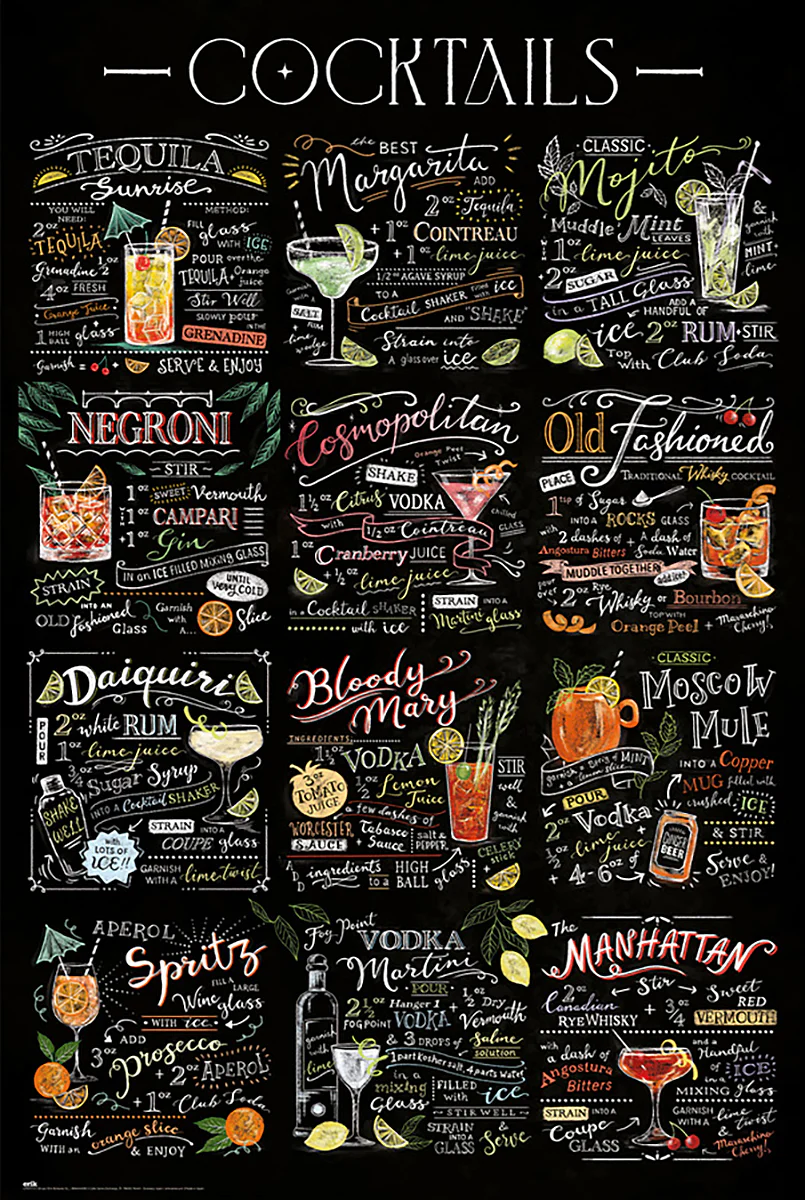 COCKTAILS
TEQUILA
Sunrise
YOU WILL NEED:
2oz
TEQUILA
Grenadine 1/2 oz
4oz FRESH
Orange Juice
1 HIGH BALL glass
METHOD:
FILL glass
WITH ICE
POUR over the
TEQUILA + Orange juice
Stir Well
SLOWLY POUR
IN THE
GRENADINE
Garnish = + SERVE & ENJOY
the BEST
Margarita
ADD
2oz Tequila
+ 1oz COINTREAU
+ 1oz lime juice
1/2 oz AGAVE SYRUP
TO A
Cocktail SHAKER filled with ice
AND "SHAKE"
Garnish
WITH A
SALT
RIM
+
lime
wedge
Strain into
A glass over ice
CLASSIC
Mojito
Muddle Mint
LEAVES
1oz lime juice
+ 2oz SUGAR
in a TALL Glass
ADD A
HANDFUL OF
ice 2oz RUM • STIR
Top With Club Soda
&
garnish
with
MINT
+
lime
NEGRONI
STIR
1oz SWEET Vermouth
1oz CAMPARI
+ 1oz Gin
IN an ICE FILLED MIXING GLASS
STRAIN
UNTIL
very COLD
INTO AN
OLD fashioned
Glass
Garnish
with
A...
Slice
Cosmopolitan
Orange Peel
Twist
SHAKE
1 1/2 oz Citrus VODKA
with 1/2 oz Cointreau
1oz Cranberry JUICE
+ 1/2 oz lime juice
chilled
GLASS
in a Cocktail SHAKER
with ice
STRAIN INTO A
Martini glass
Old Fashioned
TRADITIONAL Whisky COCKTAIL
PLACE
1 tsp of Sugar
INTO A ROCKS GLASS
with 2 dashes of + A dash of
Angostura Bitters Soda Water
MUDDLE TOGETHER
add ice!
pour
over
2oz Rye Whisky or Bourbon
TOP WITH
Orange Peel + Maraschino
Cherry!
Daiquiri
POUR
2oz white RUM
1oz lime juice
3/4 oz Sugar Syrup
INTO A Cocktail SHAKER
SHAKE
WELL
with
LOTS OF
ICE!!
STRAIN INTO A
COUPE glass
GARNISH
WITH A lime twist
Bloody
Mary
INGREDIENTS:
1 1/2 oz VODKA
3oz
TOMATO
JUICE
1/2 oz Lemon
Juice
a few dashes of
WORCESTER
SAUCE
Tabasco
Sauce
salt &
PEPPER
ADD ingredients
to a HIGH
BALL glass
STIR
well
&
garnish
with
CELERY
stick
+
CLASSIC
MOSCOW
MULE
garnish = sprig of MINT
+ a lemon slice
INTO A Copper
MUG filled with
crushed ICE
POUR
2oz Vodka
1/2 oz lime juice
+ 4-6oz of
GINGER
BEER
& STIR
Serve &
ENJOY!
APEROL
Spritz
FILL A LARGE
Wine glass
WITH ice
ADD
3oz Prosecco
+ 2oz APEROL
+ 1oz Club Soda
Garnish
WITH AN orange slice
& ENJOY
Fog Point
VODKA
Martini
POUR
2 1/2 oz Hanger 1 + 1/2 oz Dry
FOG POINT VODKA Vermouth
& 3 DROPS of Saline
solution
1 part kosher salt, 4 parts water
in a
mixing
Glass
FILLED
WITH ice
STIR WELL
STRAIN
INTO A
GLASS & Serve
garnish
with
lime
The
MANHATTAN
Stir
2oz
Canadian
RYE WHISKY
+ 3/4 oz Sweet
RED
VERMOUTH
with
a dash of
Angostura
Bitters
and a
Handful
of ICE
in a
MIXING glass
STRAIN INTO A
Coupe
GLASS
GARNISH
WITH a lime
twist
& Maraschino
Cherry!
erik